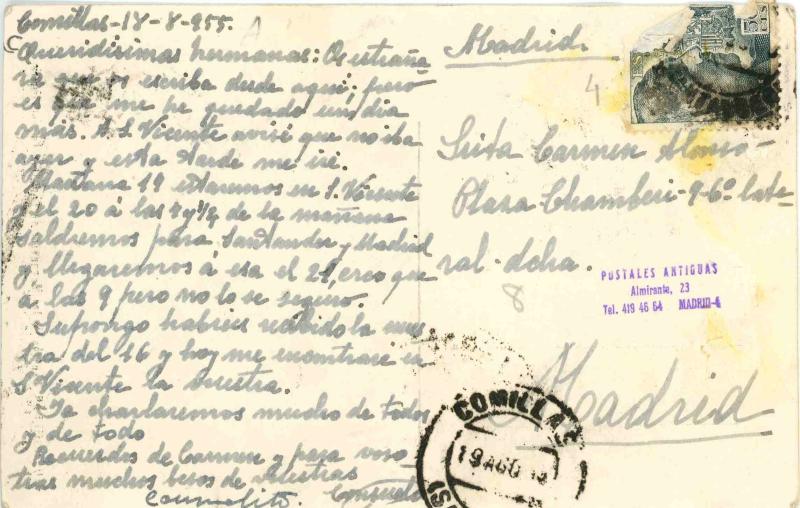 Comillas-18-8-955.
Queridísimas hermanas: Os extraña-
rá que os escriba desde aquí; pero
es que me he quedado un día
más. A S. Vicente avisé que no iba
ayer y esta tarde me iré.
Mañana 19 estaremos en S. Vicente
y el 20 á las de la mañana
saldremos para Santander y Madrid
y llegaremos á esa el 21, creo que
á las 9 pero no lo se seguro.
Supongo habreis recibido la nues-
tra del 16 y hoy me encontraré en
S. Vicente la vuestra.
Ya charlaremos mucho de todos
y de todo
Recuerdos de Carmen y para voso-
tras muchos besos de
Consuelito. Consuelo
Madrid
50 CTS
4
Srita Carmen Alonso-
Plaza Chamberi-9-6º late-
ral-dcha.
8
POSTALES ANTIGUAS
Almirante, 23
Tel. 419 46 64 MADRID-4
Madrid
COMILLAS
19 AGO